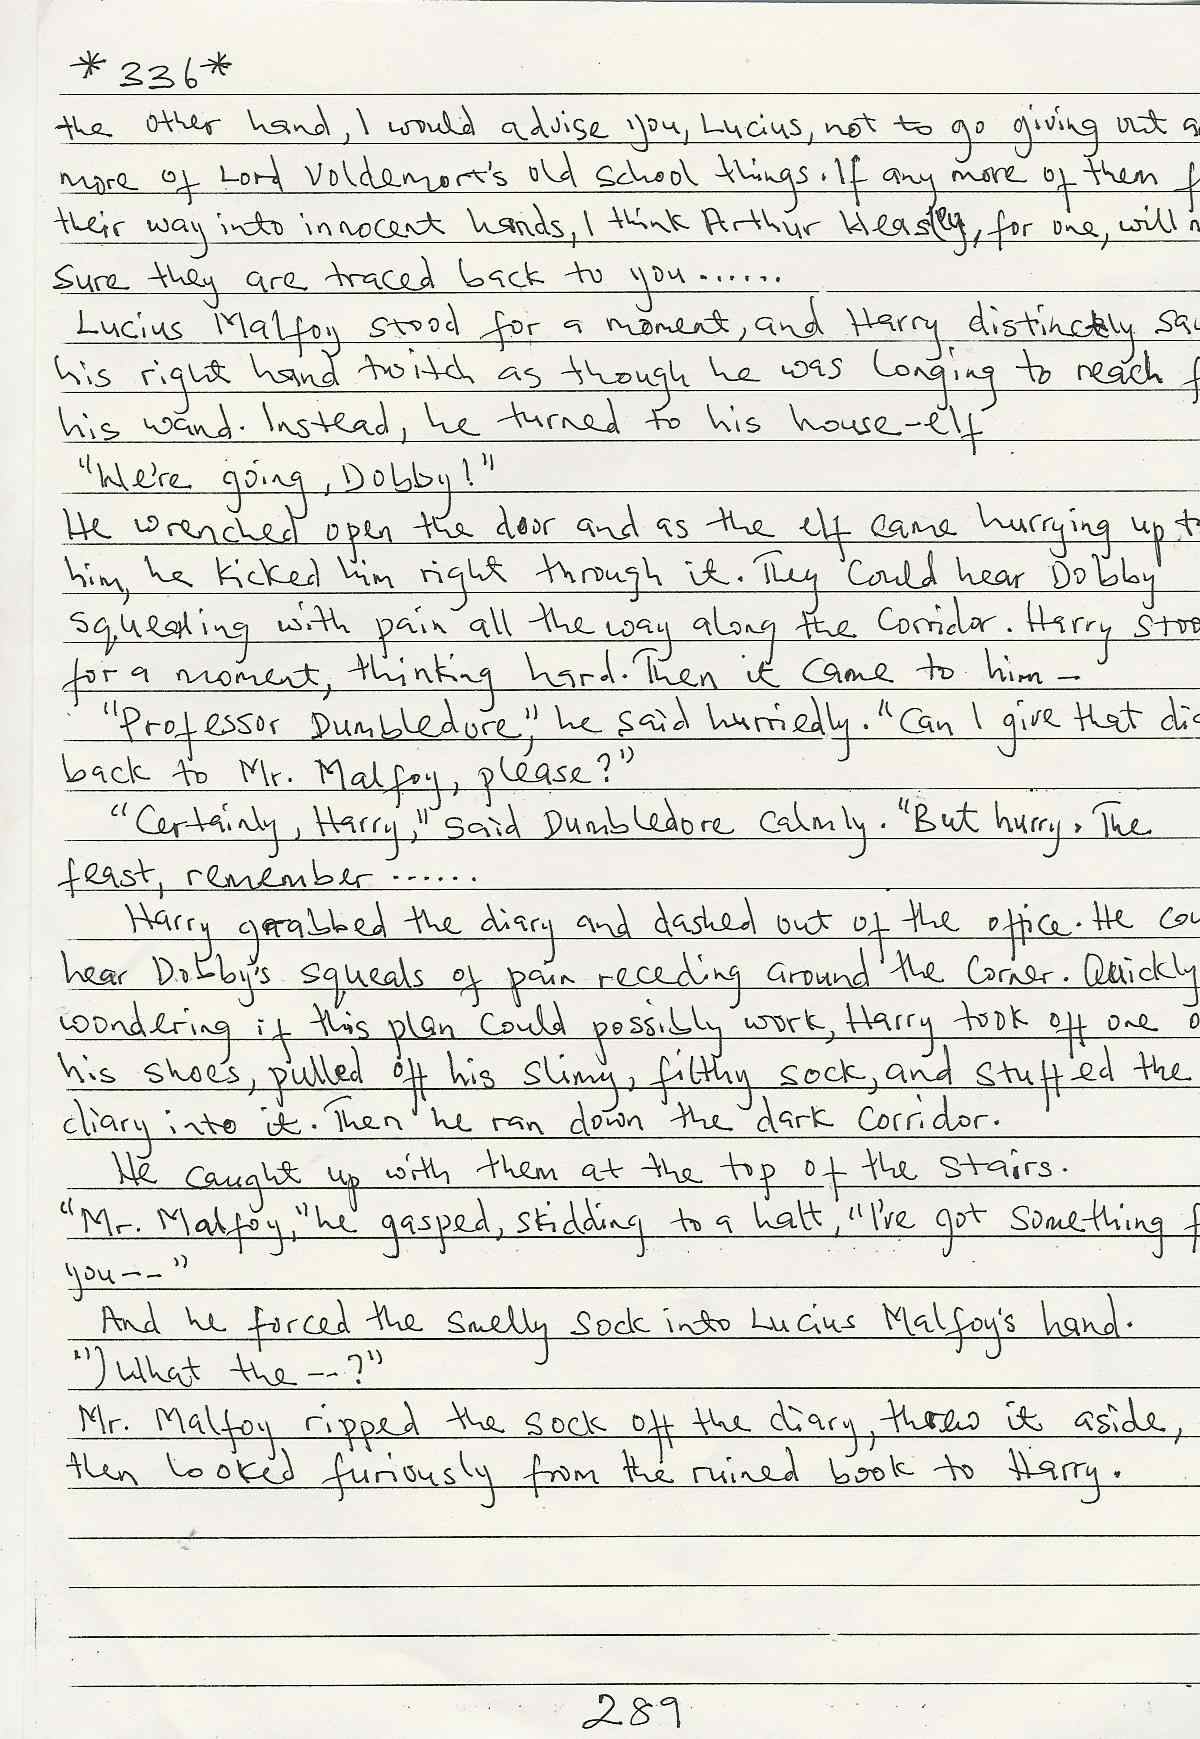 *336*
the other hand, I would advise you, Lucius, not to go giving out a
more of Lord Voldemort's old school things. If any more of them f
their way into innocent hands, I think Arthur Weasley, for one, will m
sure they are traced back to you......
Lucius Malfoy stood for a moment, and Harry distinctly saw
his right hand twitch as though he was longing to reach f
his wand. Instead, he turned to his house-elf
"We're going, Dobby!"
He wrenched open the door and as the elf came hurrying up to
him, he kicked him right through it. They could hear Dobby
squealing with pain all the way along the corridor. Harry stoo
for a moment, thinking hard. Then it came to him -
"Professor Dumbledore," he said hurriedly. "Can I give that dia
back to Mr. Malfoy, please?"
"Certainly, Harry," said Dumbledore calmly. "But hurry. The
feast, remember ......
Harry grabbed the diary and dashed out of the office. He cou
hear Dobby's squeals of pain receding around the corner. Quickly
woondering if this plan could possibly work, Harry took off one o
his shoes, pulled off his slimy, filthy sock, and stuffed the
diary into it. Then he ran down the dark corridor.
He caught up with them at the top of the stairs.
"Mr. Malfoy," he gasped, skidding to a halt, "I've got something f
you--"
And he forced the smelly sock into Lucius Malfoy's hand.
") What the --?"
Mr. Malfoy ripped the sock off the diary, threw it aside,
then looked furiously from the ruined book to Harry.
289